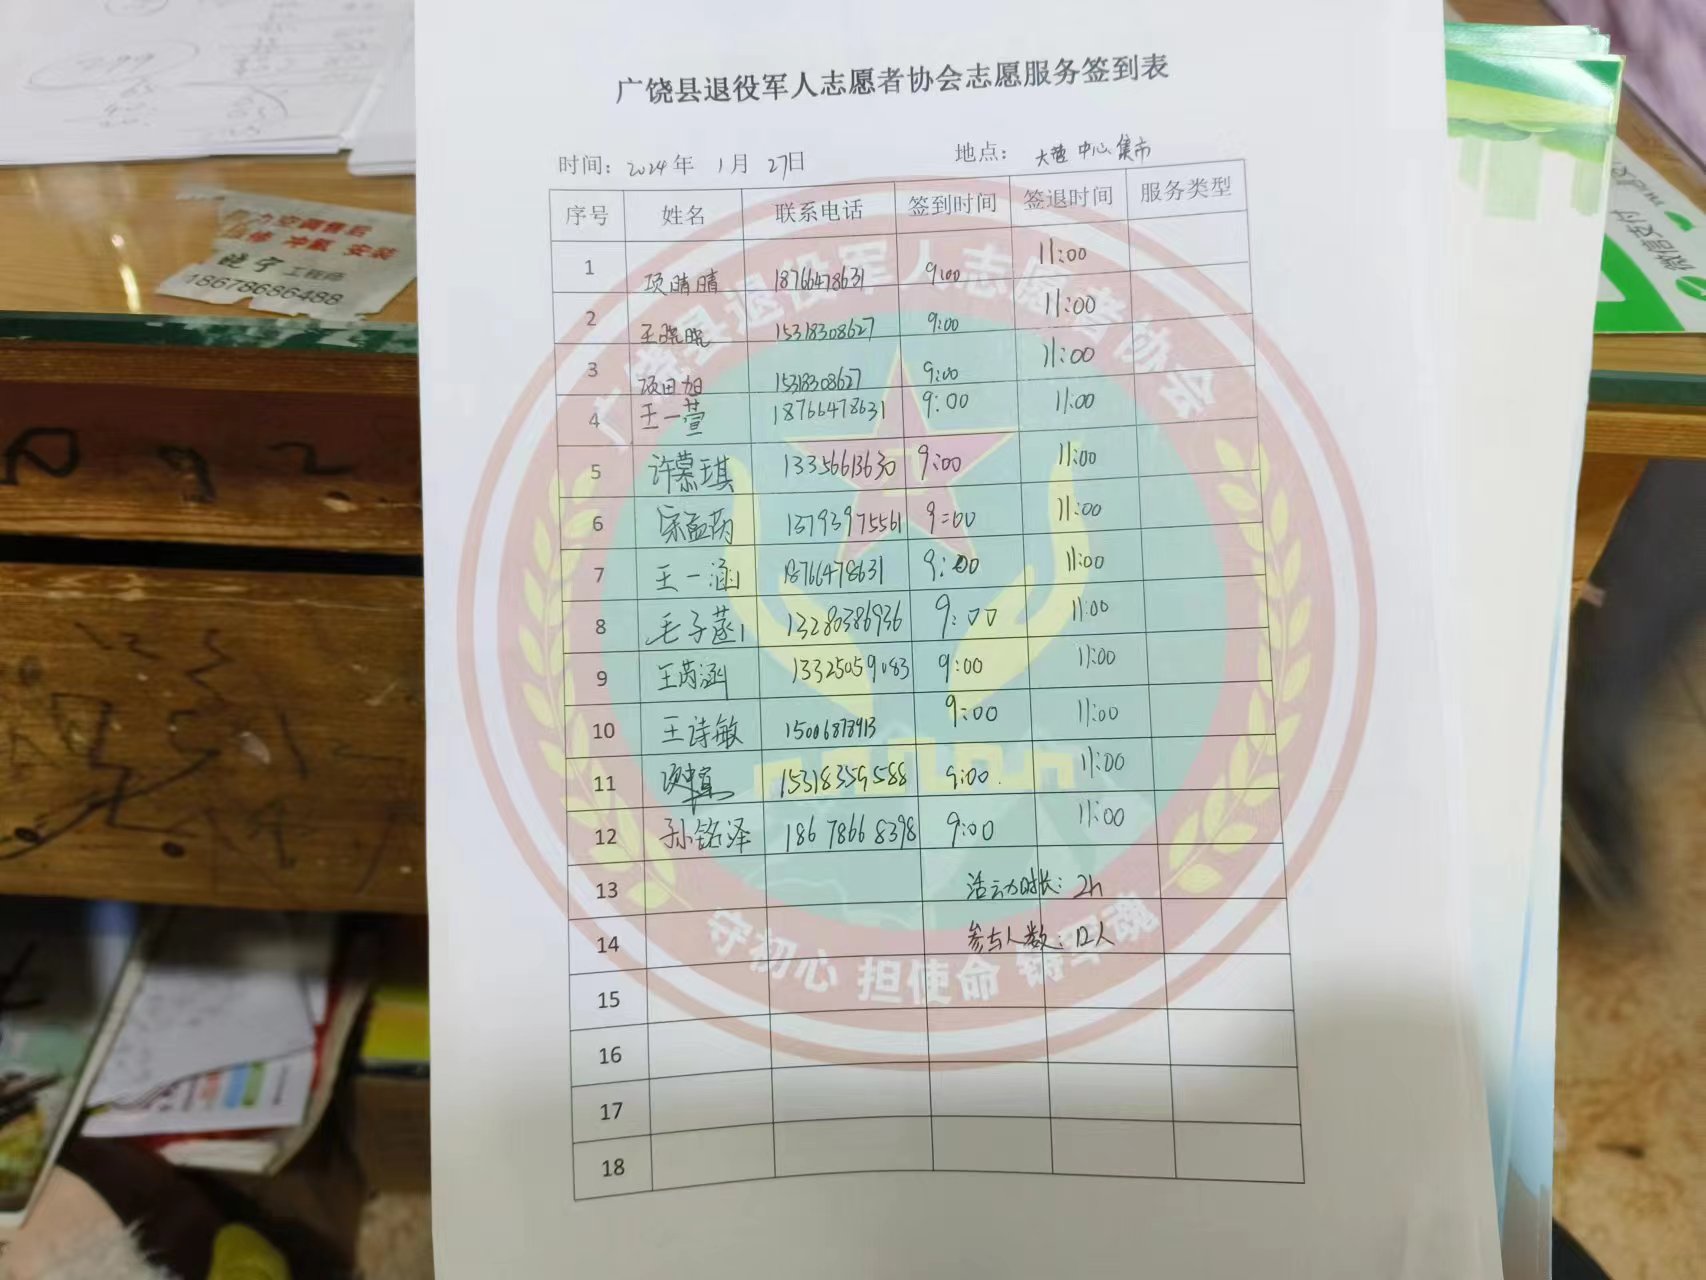 广饶县退役军人志愿者协会志愿服务签到表
时间：2024年 1月 27日 地点： 大营 中心集市
序号 姓名 联系电话 签到时间 签退时间 服务类型
1 项晴晴 18766478631 9:00 11:00
2 王晓晓 15318308627 9:00 11:00
3 项田旭 15318308627 9:00 11:00
4 王一萱 18766478631 9:00 11:00
5 许慕琪 13356613630 9:00 11:00
6 宋孟荫 13793975561 9:00 11:00
7 王一涵 18766478631 9:00 11:00
8 毛子菡 13280386936 9:00 11:00
9 王芮涵 13325059083 9:00 11:00
10 王诗敏 15006878913 9:00 11:00
11 15318359588 9:00 11:00
12 孙铭泽 18678668398 9:00 11:00
13 活动时长：2h
14 参与人数：12人
15
16
17
18
广饶县退役军人志愿者协会
守初心 担使命 铸军魂
空调售后
维修 冲氟 安装
晓宁 工程师
18678686488
092
微信支付